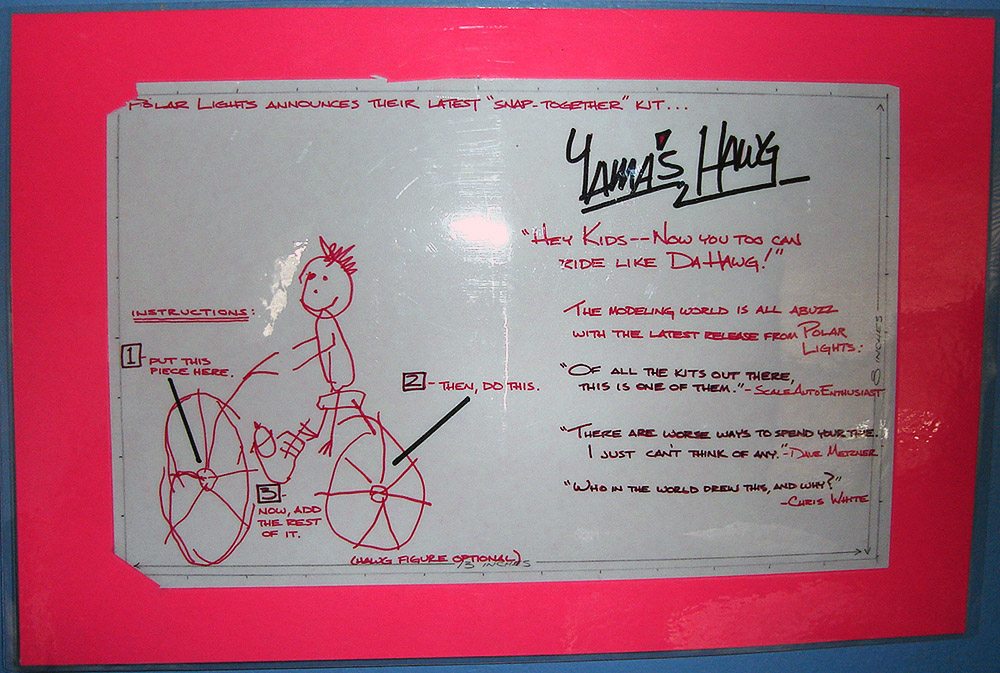 POLAR LIGHTS ANNOUNCES THEIR LATEST "SNAP-TOGETHER" KIT...
YAMA'S HAWG
"HEY KIDS--NOW YOU TOO CAN
RIDE LIKE DA HAWG!"
INSTRUCTIONS:
1 - PUT THIS
PIECE HERE.
2 - THEN, DO THIS.
3 -
NOW, ADD
THE REST
OF IT.
(HAWG FIGURE OPTIONAL)
THE MODELING WORLD IS ALL ABUZZ
WITH THE LATEST RELEASE FROM POLAR
LIGHTS:
"OF ALL THE KITS OUT THERE,
THIS IS ONE OF THEM."-SCALE AUTO ENTHUSIAST
"THERE ARE WORSE WAYS TO SPEND YOUR TIME.
I JUST CAN'T THINK OF ANY."-DAVE METZNER
"WHO IN THE WORLD DREW THIS, AND WHY?"
-CHRIS WHITE
8 INCHES
INCHES